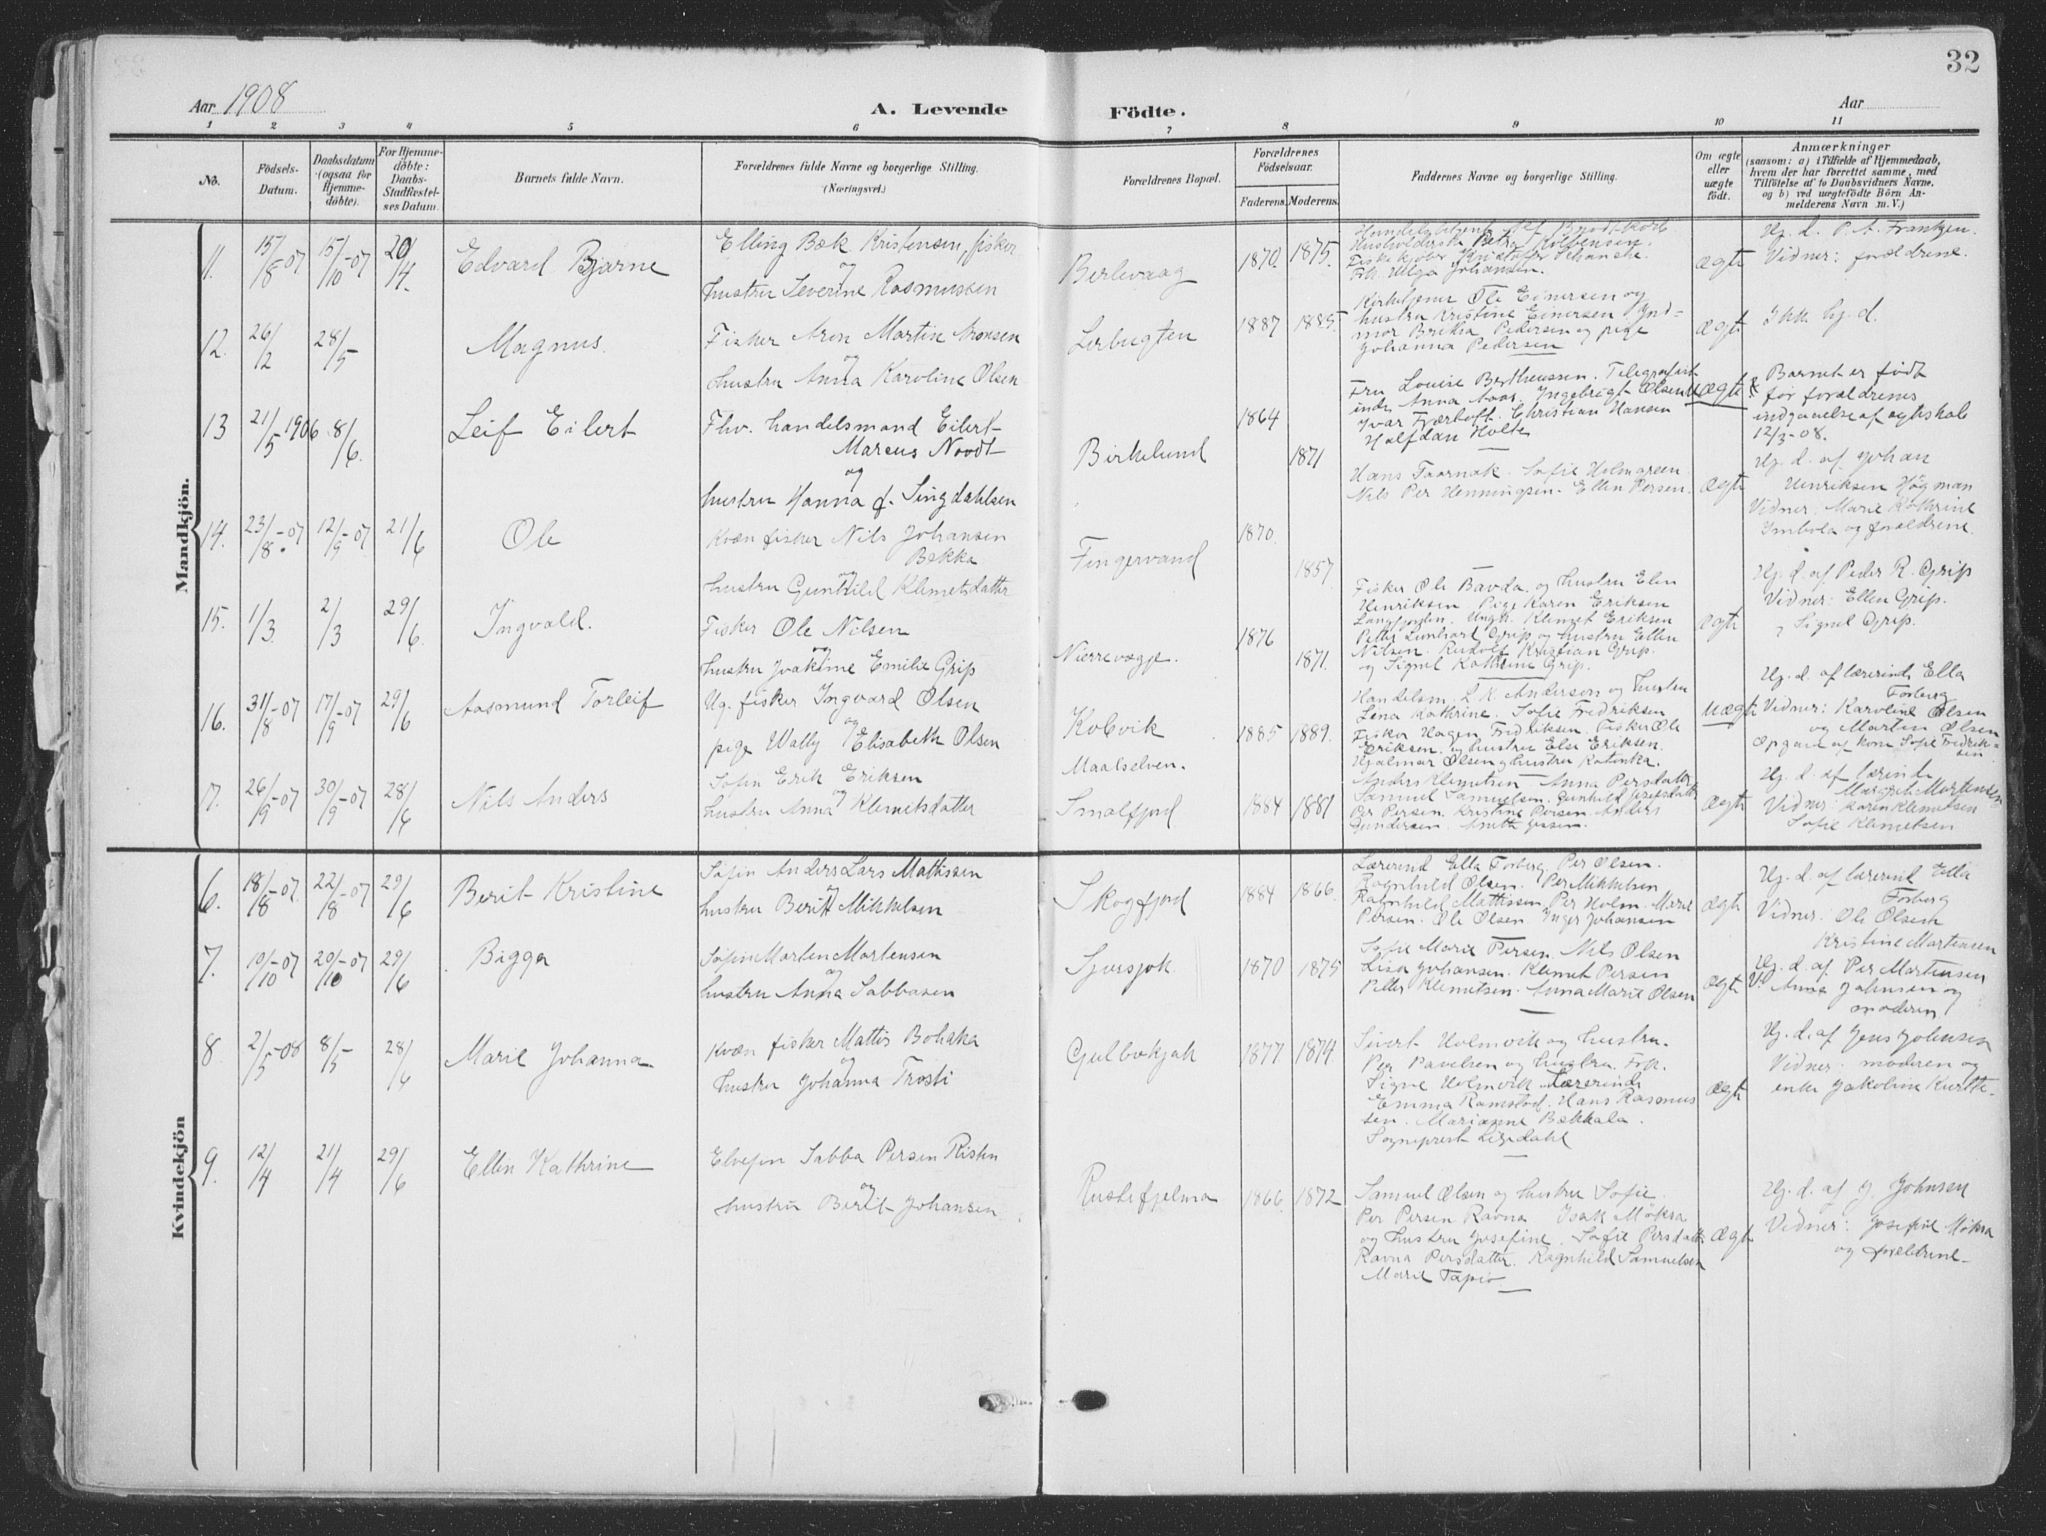 32
Aar 1908
A. Levende Födte.
Aar
1 2 3 4 5 6 7 8 9 10 11
No.
Födsels-Datum.
Daabsdatum (ogsaa for Hjemmedöbte).
For Hjemmedöbte: Daabs-Stadfæstelses Datum.
Barnets fulde Navn.
Forældrenes fulde Navne og borgerlige Stilling. (Næringsvei.)
Forældrenes Bopæl.
Forældrenes Födselsaar.
Faderens. Moderens.
Faddernes Navne og borgerlige Stilling.
Om ægte eller uægte födt.
Anmærkninger
(saasom: a) i Tilfælde af Hjemmedaab, hvem der har forrettet samme, med Tilföielse af to Daabsvidners Navne, og b) ved uægtefödte Börn Anmelderens Navn m. V.)
Mandkjön.
11. 15/8-07 15/10-07 20/4 Edvard Bjarne
Elling Bæk Kristensen, fisker
og
hustru Severine Rasmussen
Berlevaag 1870. 1875.
Frk. Helga Johansen.
ægte
Hj. d. P. A. Frantzen.
Vidner: forældrene.
12. 26/2 28/5 Magnus.
Fisker Aron Martin Aronsen
og
hustru Anna Karoline Olsen
Lerbugten 1887 1885
Kirketjener Ole Einersen og
hustru Kristine Einersen
Pedersen og pige
Johanna Pedersen
ægte
Ikke hj. d.
13 21/5 1906 8/6. Leif Eilert
Fhv. handelsmand Eilert
Marcus Nordt
og
hustru Hanna f. Singdahlsen
Birkelund 1864 1871
Fru Louise Bertheussen. Telegrafist
inde Anna Aas. Ingebrigt Olsen
Ivar Tverhoff. Christian Hansen
Halfdan Holte
uægte
Barnet er født
før forældrenes
indgaaelse af egteskab
12/3-08.
14. 23/8-07 12/9-07 21/6 Ole
Kvæn fisker Nils Johansen
Bekka
og
hustru Gunhild Klemetsdatter
Fingervand 1870. 1857.
Hans Taornak. Sofie Holmgreen
Nils Per Henningsen. Ellen Persen.
ægte
Hj. d. af Johan
Henriksen Högman
Vidner: Marie Kathrine
Imbola og forældrene.
15. 1/3. 2/3 29/6. Ingvald.
Fisker Ole Nilsen
og
hustru Joakime Emilie Grip
Nierrevægje. 1876 1871.
Fisker Ole Bavda og hustru Elen
Henriksen Pige Karen Eriksen
Langfjorden. Ungk. Klemet Eriksen
Peter Lenhart Grip og hustru Ellen
Nilsen. Rudolf Kristian Grip.
og Signel Kathrine Grip.
ægte
Hj. d. af Peder R. Grip
Vidner: Ellen Grip.
Signel Grip.
16. 31/8-07 17/9-07 29/6 Aasmund Torleif
Ug. fisker Ingvard Olsen
og
pige Wally Elisabeth Olsen
Kolvik
Maalselven.
1885 1889.
Handelsm. L. K. Anderson og hustru
Lina Kathrine. Sofie Fredriksen
Fisker Hagen Fredriksen. Fisker Ole
Eriksen og hustru Else Eriksen.
Hjalmar Olsen og hustru Katinka.
uægte
Hj. d. af lærerinde Ella
Forberg
Vidner: Karoline Olsen
og Martin Olsen
Opgave af kone Sofie Fredriksen
17. 26/9-07 30/9-07 28/6 Nils Anders
Sofin Erik Eriksen
og
hustru Anna Klemetsdatter
Smalfjord 1884 1881
Anders Klemetsen. Anna Persdatter
Samuel Samuelsen. Gunhild
Per Persen. Kristine Persen. Anders
Gundersen.
ægte
Hj. d. af lærinde
Margret Mortensen
Vidner: Karen Klemetsen
Sofie Klemetsen
Kvindekjön
6. 18/8-07. 22/8-07 29/6 Berit Kristine
Søfin Anders Lars Mathissen
og
hustru Berit Mikkelsen
Skogfjord 1884 1866.
Lærerind Ella Forberg, Per Olsen.
Ragnhild Olsen. Per Mikkelsen
Ragnhild Mathissen. Per Holm. Marie
Persen. Ole Olsen. Inger Johansen
ægte
Hj. d. af lærerind Ella
Forberg
Vidner: Ole Olsen
Kristine Mortensen
7. 10/10-07 20/10-07 29/6 Bigga
Søfin Morten Mortensen
og
hustru Anna Sabbasen
Sjursjok. 1870 1875
Sofie Marie Persen. Nils Olsen
Lisa Johansen. Klemet Persen
Petter Klemetsen. Anna Marie Olsen
ægte
Hj. d. af Per Mortensen
V. Anna Johnsen og
moderen
8. 2/5-08 8/5 28/6 Marie Johanna.
Kvæn fisker Mattis Bohaka
og
hustru Johanna Trosti
Gulbokjok 1877 1874
Sivert Holmvik og hustru.
Per Pavelsen og hustru. Frk.
Signe Holmvik. Lærerinde
Emma Ramstad. Hans Rasmus
sen. Marianne Bækkala.
Sogneprest Ligedahl
ægte
Hj. d. af Jens Johnsen
Vidner: moderen og
enke Jakobine Kurtte.
9. 12/4 21/4 29/6 Ellen Kathrine
Elvefin Sabba Persen Risten
og
hustru Berit Johansen
Rustefjelma 1866. 1872
Samuel Olsen og hustru Sofie.
Per Persen Ravna Isak Møksa
og hustru Josefine. Sofie Persdatter
Ravna Persdatter. Ragnhild Samuelsen
Marie Tapio
ægte
Hj. d. af J. Johnsen
Vidner: Josefine Møksa
og forældrene